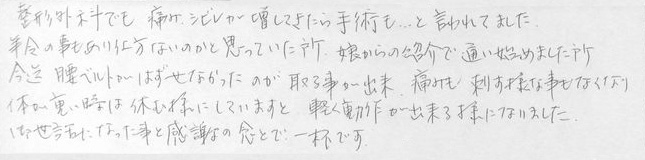 整形外科でも 痛み、シビレが増してきたら手術も…と言われてました。
年令の事もあり仕方ないのかと思っていた所、娘からの紹介で通い始めました所
今迄 腰ベルトがはずせなかったのが取る事が出来、痛みも刺す様な事もなくなり
体が重い時は休む様にしていますと 軽く動作が出来る様になりました。
御世話になった事と感謝の念とで一杯です。